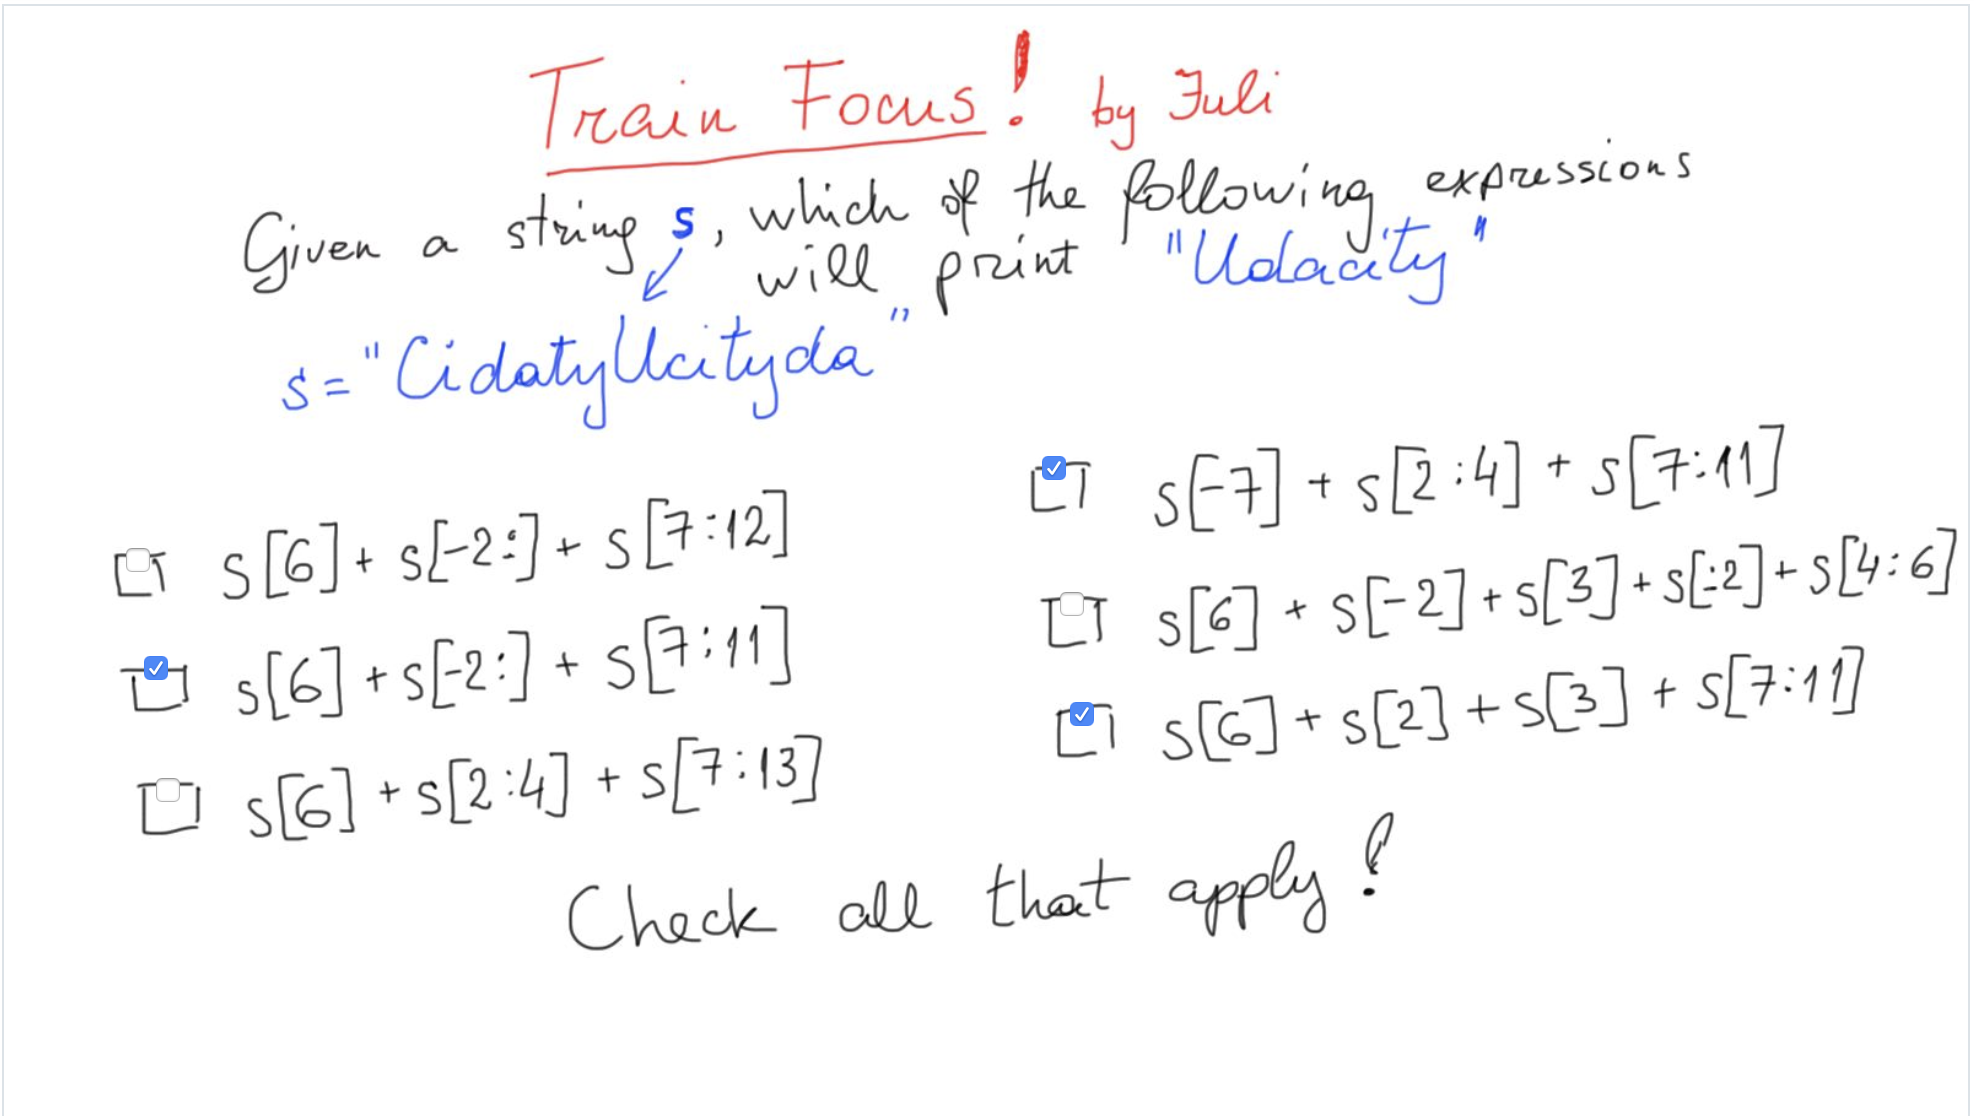 Train Focus! by Juli
Given a string s, which of the following expressions
will print "Udacity"
s = "CidatyUcityda"
s[6] + s[-2:] + s[7:12]
s[6] + s[-2:] + s[7:11]
s[6] + s[2:4] + s[7:13]
s[-7] + s[2:4] + s[7:11]
s[6] + s[-2] + s[3] + s[:2] + s[4:6]
s[6] + s[2] + s[3] + s[7:11]
Check all that apply!